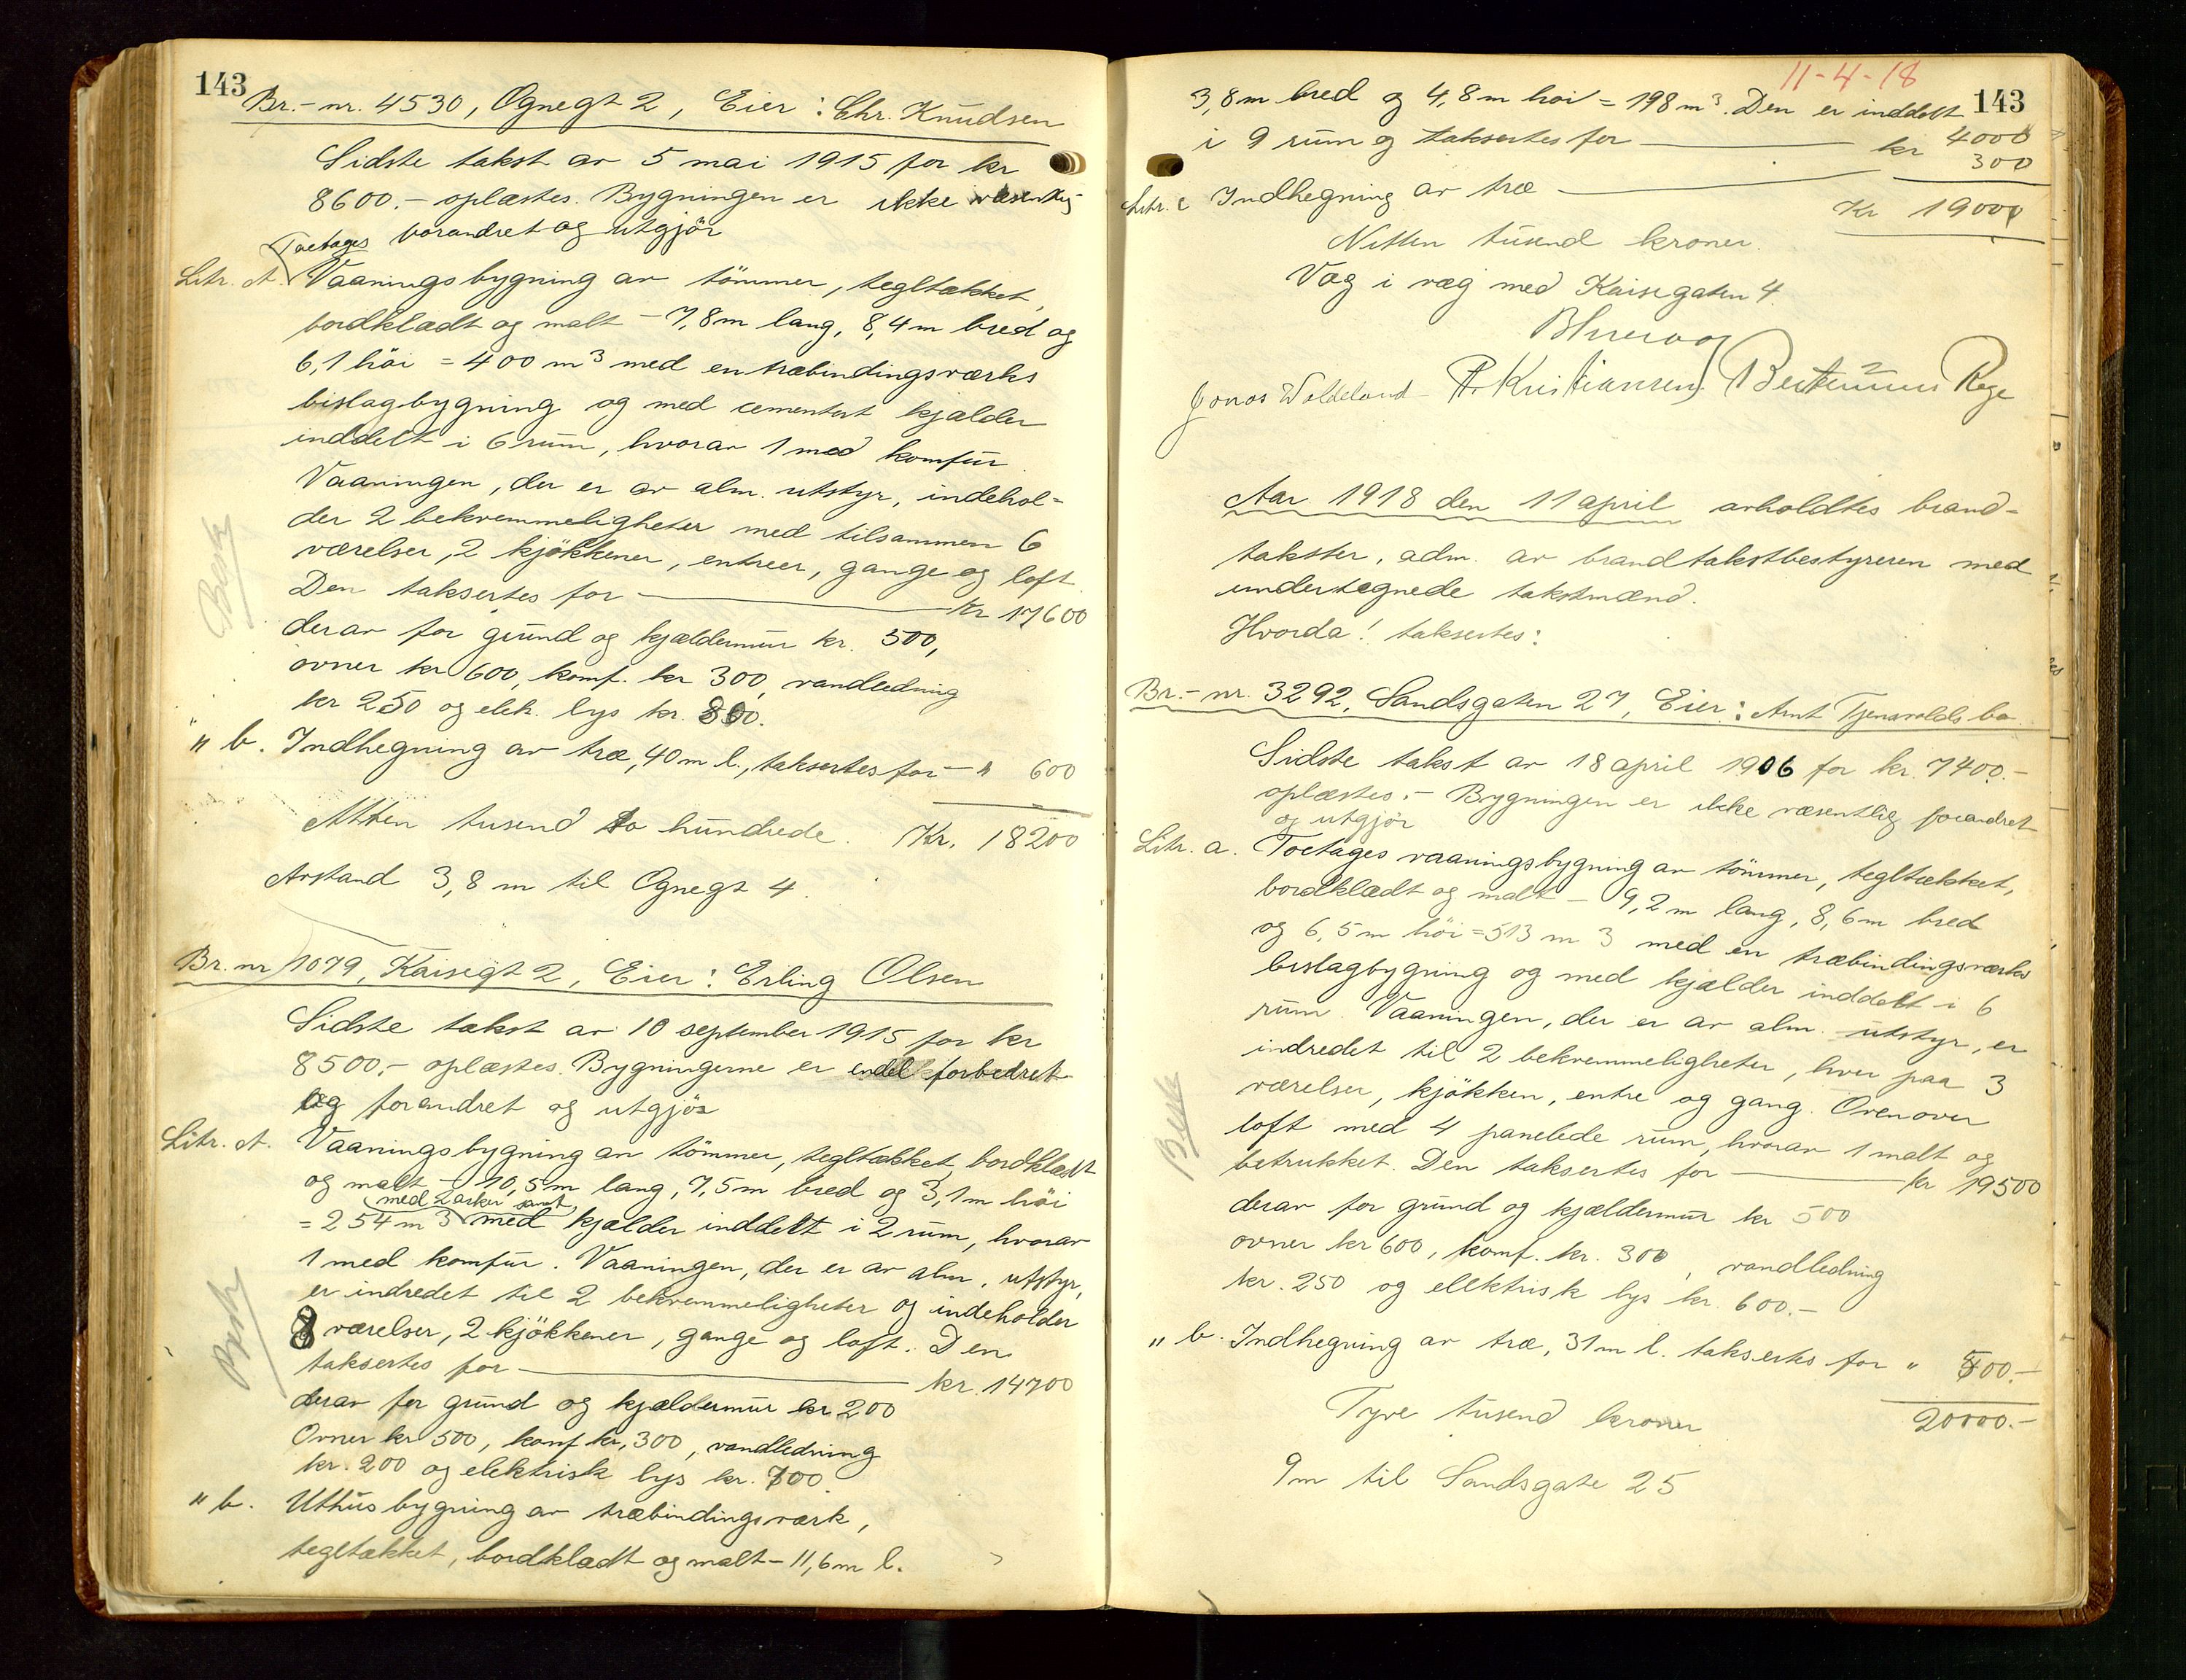 143
Br.-nr. 4530, Ognegt 2, Eier: Chr. Knudsen
Sidste takst av 5 mai 1915 for kr
8600.- oplæstes. Bygningen er ikke væsentlig
forandret og utgjör
Toetages
Litr. A. Vaaningsbygning av tömmer, tegltækket,
bordklædt og malt - 7,8m lang, 8,4m bred og
6,1 höi = 400 m3 med en træbindingsverks
bislagbygning og med cementert kjælder
inddelt i 6 rum, hvorav 1 med komfur.
Vaaningen, der er av alm. utstyr, indehol-
der 2 bekvemmeligheter med tilsammen 6
værelser, 2 kjökkener, entreer, gange og loft.
Den taksertes for kr 17600
derav for grund og kjældermur kr. 500,
ovner kr 600, komf. kr 300, vandledning
kr 250 og elek. lys kr. 800.
" b. Indhegning av træ, 40m l., taksertes for - " 600
Atten tusend to hundrede. Kr. 18200
Avstand 3,8 m til Ognegt 4.
Br. nr 1079, Kaisegt 2, Eier: Erling Olsen
Sidste takst av 10 september 1915 for kr
8500,- oplæstes. Bygningerne er endel forbedret
og forandret og utgjör
Litr. A. Vaaningsbygning av tömmer, tegltækket, bordklædt
og malt - 10,5m lang, 7,5m bred og 3,1m höi
med 2 arker samt
= 254 m3 med kjælder inddelt i 2 rum, hvorav
1 med komfur. Vaaningen, der er av alm. utstyr,
er indredet til 2 bekvemmeligheter og indeholder
8 værelser, 2 kjökkener, gange og loft. Den
taksertes for kr. 14700
derav for grund og kjældermur kr 200
Ovner kr 500, komf kr, 300, vandledning
kr. 200 og elektrisk lys kr. 700.
" b. Uthusbygning av træbindingsværk,
tegltækket, bordklædt og malt - 11,6m l.
11-4-18
143
3,8m bred og 4,8m høi = 198m3. Den er inddelt
i 9 rum og taksertes for kr 4000
Litr. c Indhegning av træ 300
Kr 19000
Nitten tusend kroner.
Væg i væg med Kaisegaten 4.
Jonas Waldeland P. Kristiansen Berthinius Rege
Aar 1918 den 11 april avholdtes brand-
takster, adm. av brandtakstbestyreren med
undertegnede takstmænd.
Hvorda! taksertes:
Br.-nr. 3292, Sandsgaten 27, Eier: Arnt Tjensvolds bo
Sidste takst av 18 april 1906 for kr. 7400.-
oplæstes.- Bygningen er ikke væsentlig forandret
og utgjör
Litr. a. Toetages vaaningsbygning av tömmer, tegltækket,
bordklædt og malt - 9,2m lang, 8,6m bred
og 6,5m höi = 513 m 3 med en træbindingsværks
bislagbygning og med kjælder inddelt i 6
rum. Vaaningen, der er av alm. utstyr, er
indredet til 2 bekvemmeligheter, hver paa 3
værelser, kjökken, entre og gang. Ovenover
loft med 4 panelede rum, hvorav 1 malt og
betrukket. Den taksertes for kr 19500
derav for grund og kjældermur kr 500
ovner kr 600, komf. kr. 300, vandledning
kr. 250 og elektrisk lys kr. 600.-
" b. Indhegning av træ, 31m l. taksertes for " 500.-
Tyve tusend kroner 20000.-
9m til Sandsgate 25